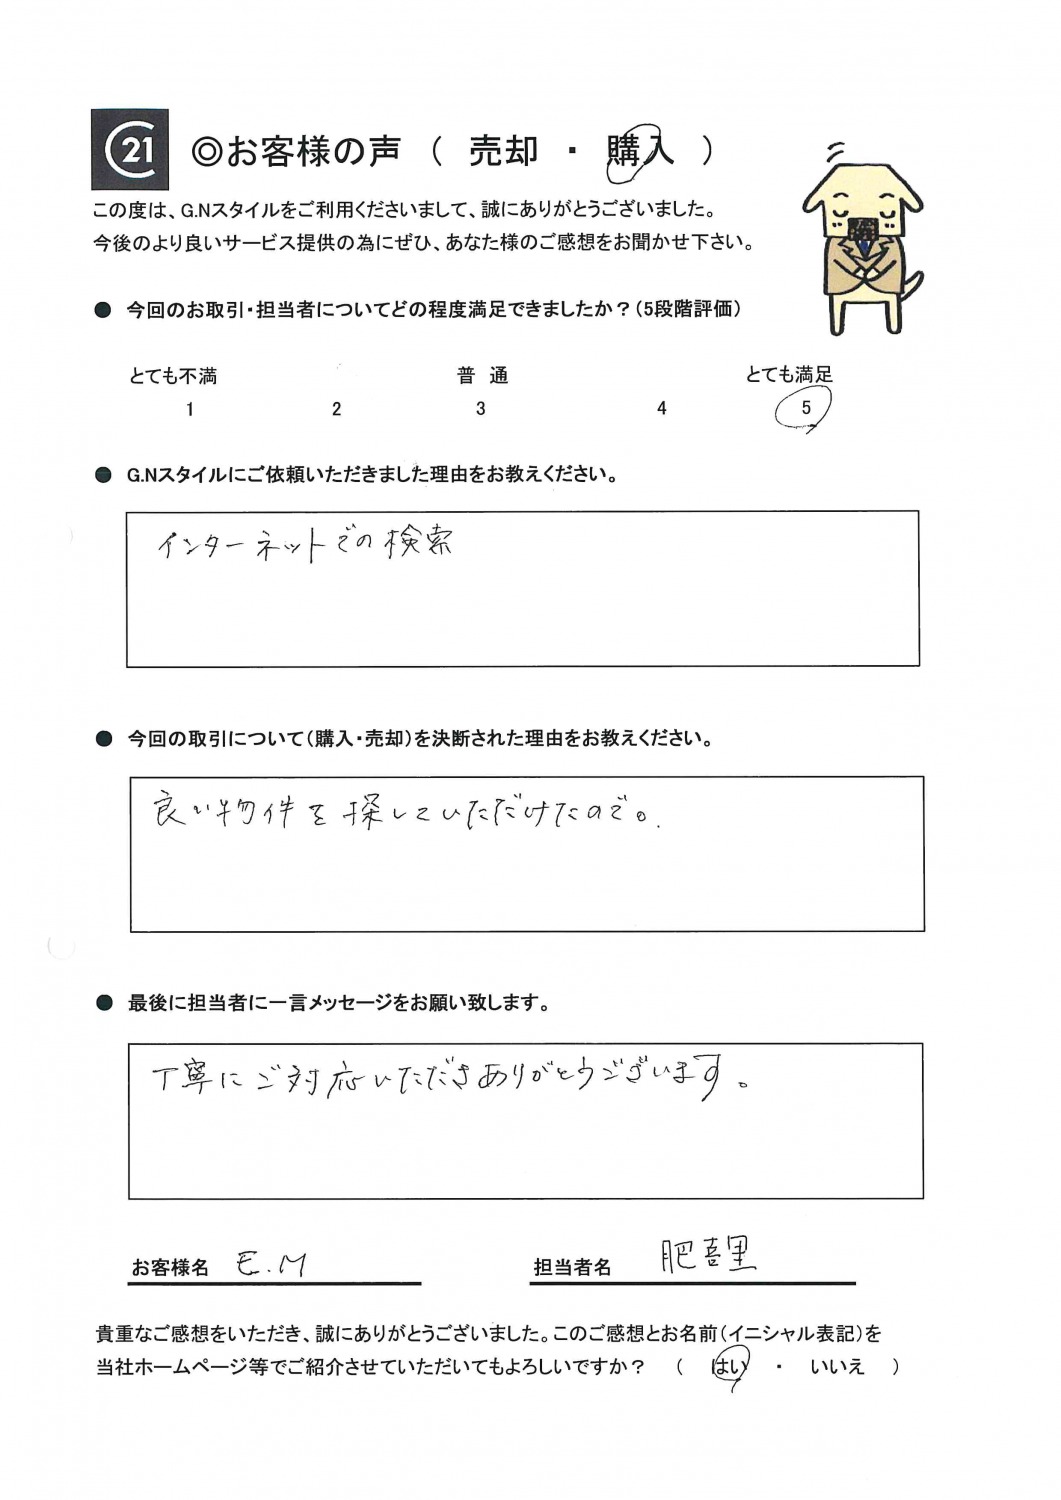 C21 ◎お客様の声 ( 売却 ・ 購入 )
この度は、G.Nスタイルをご利用くださいまして、誠にありがとうございました。
今後のより良いサービス提供の為にぜひ、あなた様のご感想をお聞かせ下さい。
● 今回のお取引・担当者についてどの程度満足できましたか？（5段階評価）
とても不満 普 通 とても満足
1 2 3 4 5
● G.Nスタイルにご依頼いただきました理由をお教えください。
インターネットでの検索
● 今回の取引について（購入・売却）を決断された理由をお教えください。
良い物件を探していただけたので。
● 最後に担当者に一言メッセージをお願い致します。
丁寧にご対応いただきありがとうございます。
お客様名 E.M 担当者名 肥喜里
貴重なご感想をいただき、誠にありがとうございました。このご感想とお名前（イニシャル表記）を
当社ホームページ等でご紹介させていただいてもよろしいですか？ （ はい ・ いいえ ）